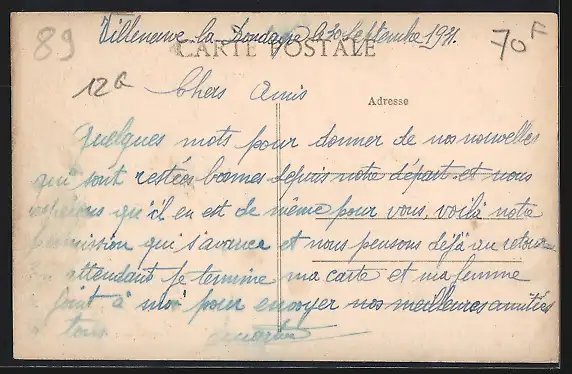 89
Villeneuve la Dondagre le 30 Septembre 1921.
CARTE POSTALE
70F
12a
Chers Amis
Adresse
Quelques mots pour donner de nos nouvelles
qui sont restées bonnes depuis notre départ et nous
espérons qu'il en est de même pour vous, voilà notre
permission qui s'avance et nous pensons déjà au retour
En attendant je termine ma carte et ma femme
se joint à moi pour envoyer nos meilleures amitiés
à tous